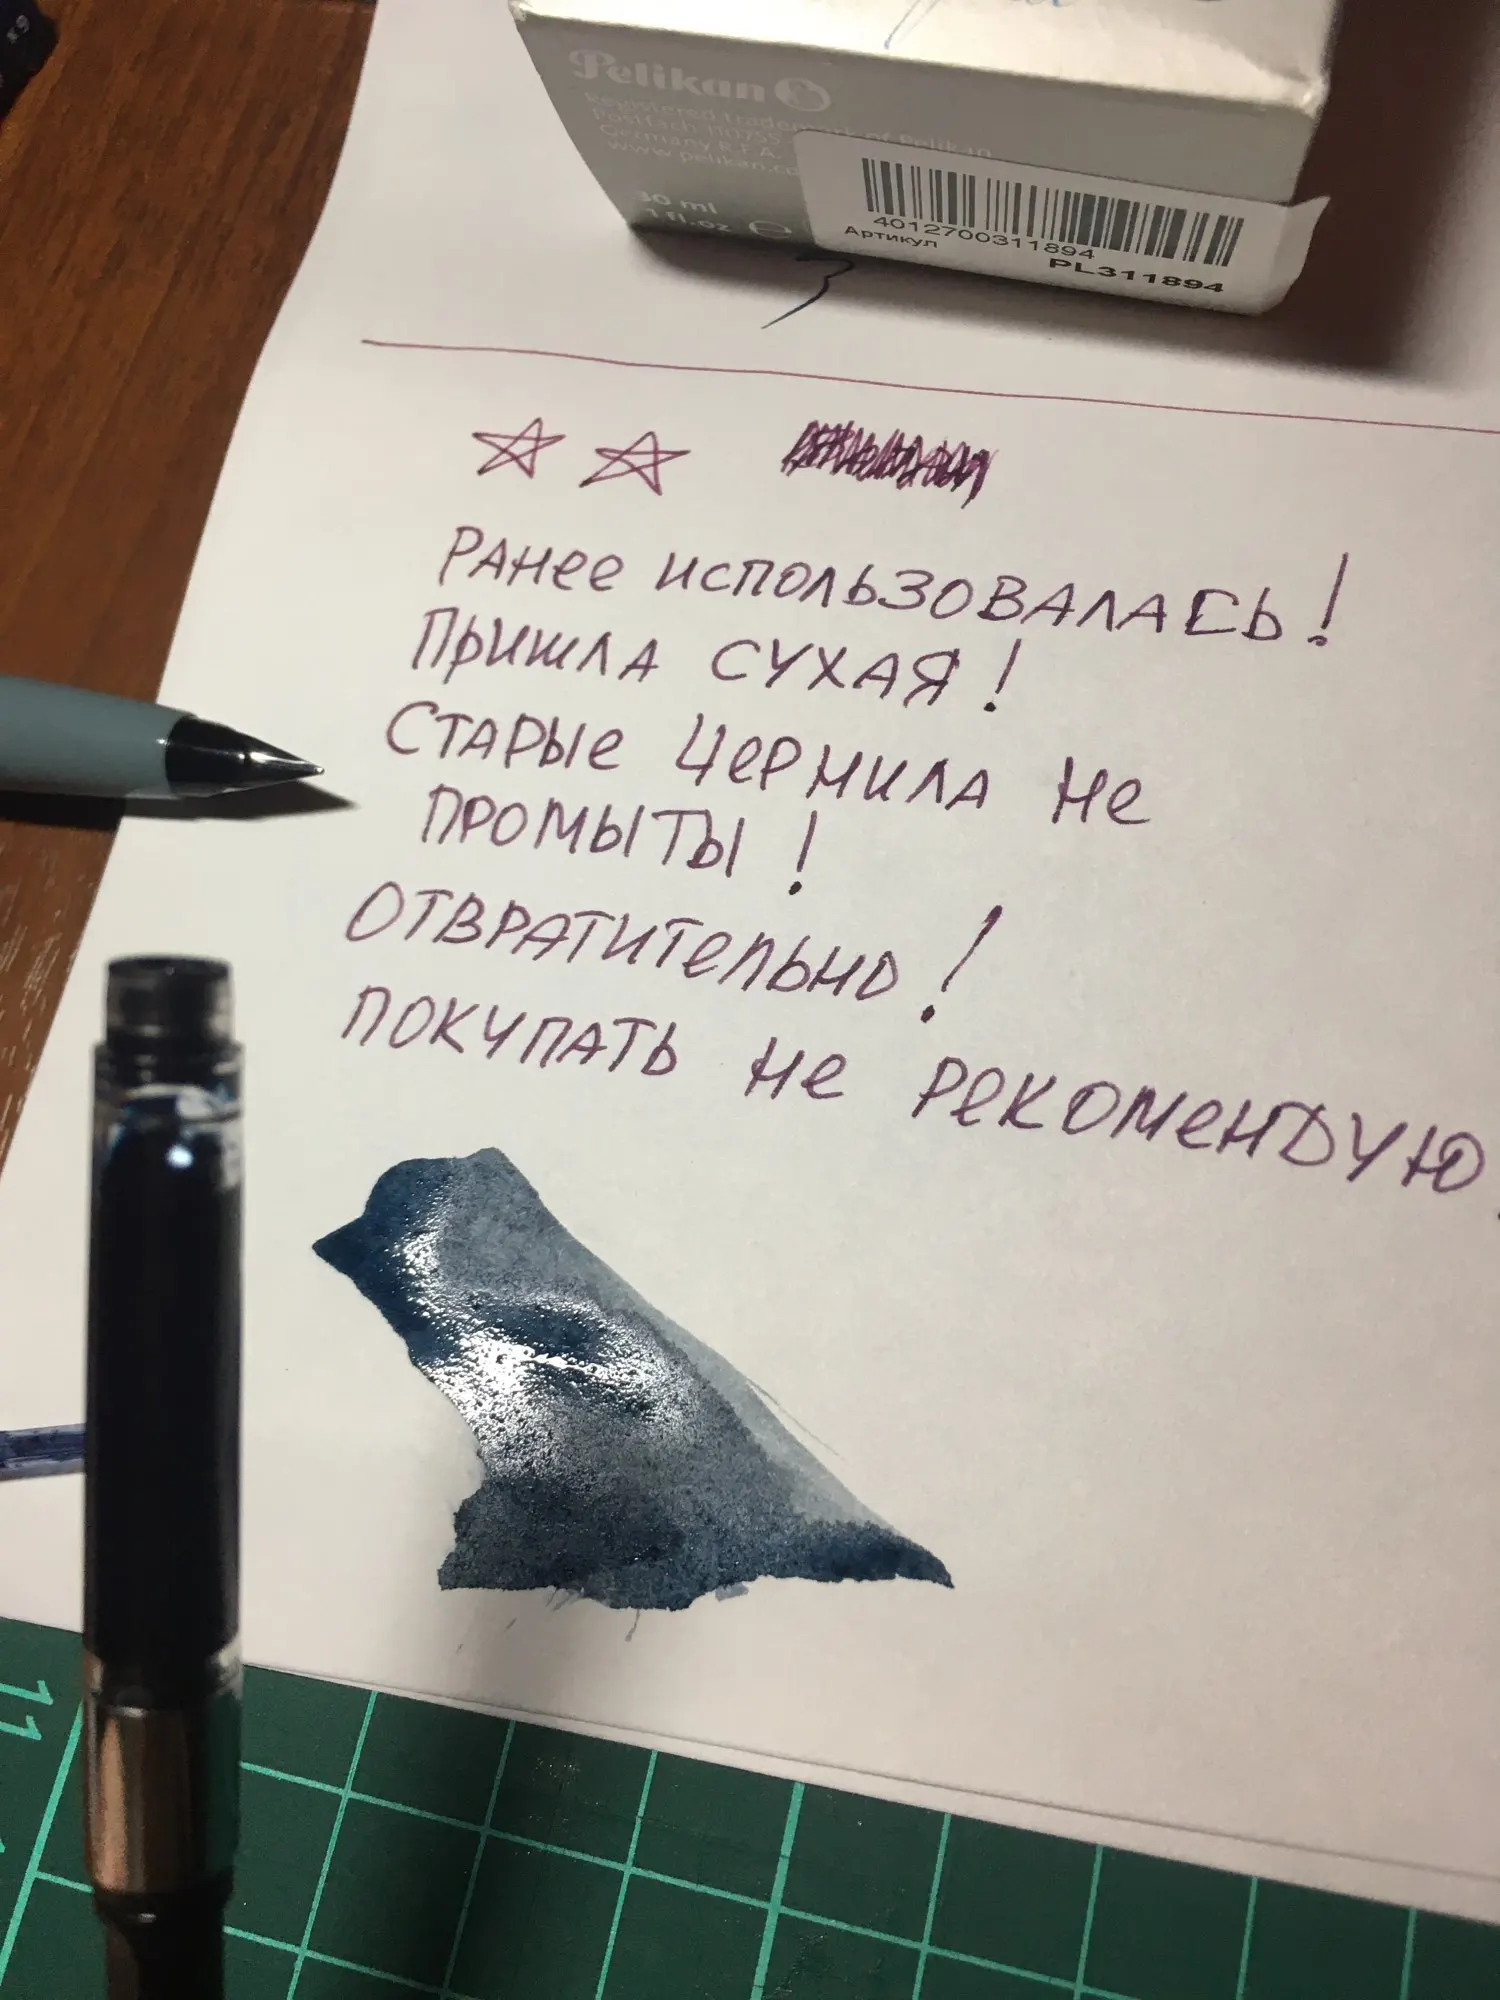 Pelikan
Registered trademark of Pelikan
Postfach 110755
Germany R.F.A.
www.pelikan.co
30 ml
1 fl.oz e
4012700311894
Артикул PL311894
Ранее использовалась!
Пришла сухая!
Старые чернила не
промыты!
Отвратительно!
Покупать не рекомендую.
11